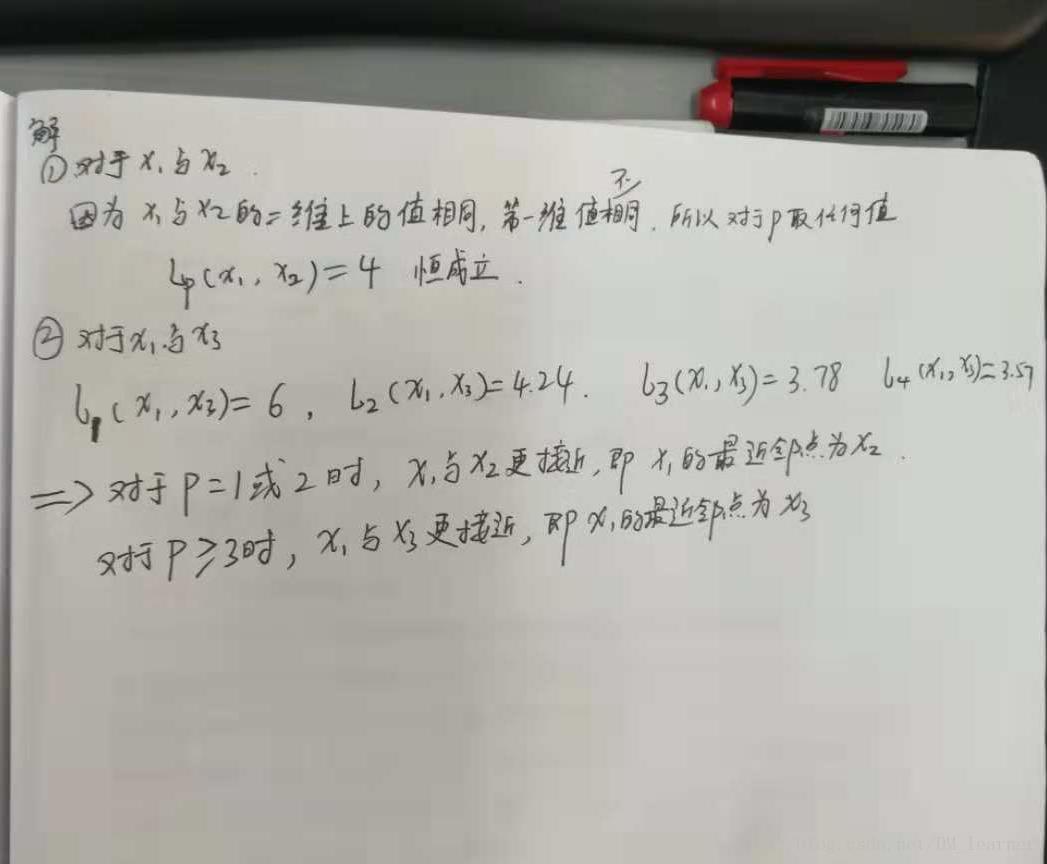 解
① 对于 x₁ 与 x₂ .
不
因为 x₁ 与 x₂ 的二维上的值相同, 第一维值相同. 所以对于p取任何值
Lp(x₁, x₂) = 4 恒成立 .
② 对于x₁与x₃
L₁(x₁, x₃) = 6 , L₂(x₁, x₃) = 4.24. L₃(x₁, x₃) = 3.78 L₄(x₁, x₃) = 3.57
=> 对于 P = 1或2时, x₁与x₂更接近, 即 x₁的最近邻点为x₂ .
对于 P ≥ 3时, x₁与x₃更接近, 即x₁的最近邻点为x₃
blog.csdn.net/DM_learner